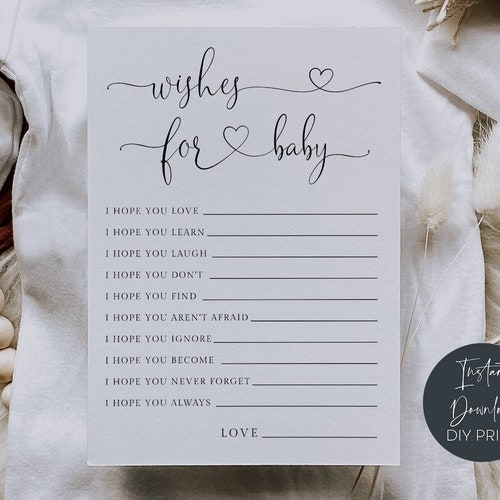 wishes
for baby
I HOPE YOU LOVE
I HOPE YOU LEARN
I HOPE YOU LAUGH
I HOPE YOU DON'T
I HOPE YOU FIND
I HOPE YOU AREN'T AFRAID
I HOPE YOU IGNORE
I HOPE YOU BECOME
I HOPE YOU NEVER FORGET
I HOPE YOU ALWAYS
LOVE
DIY